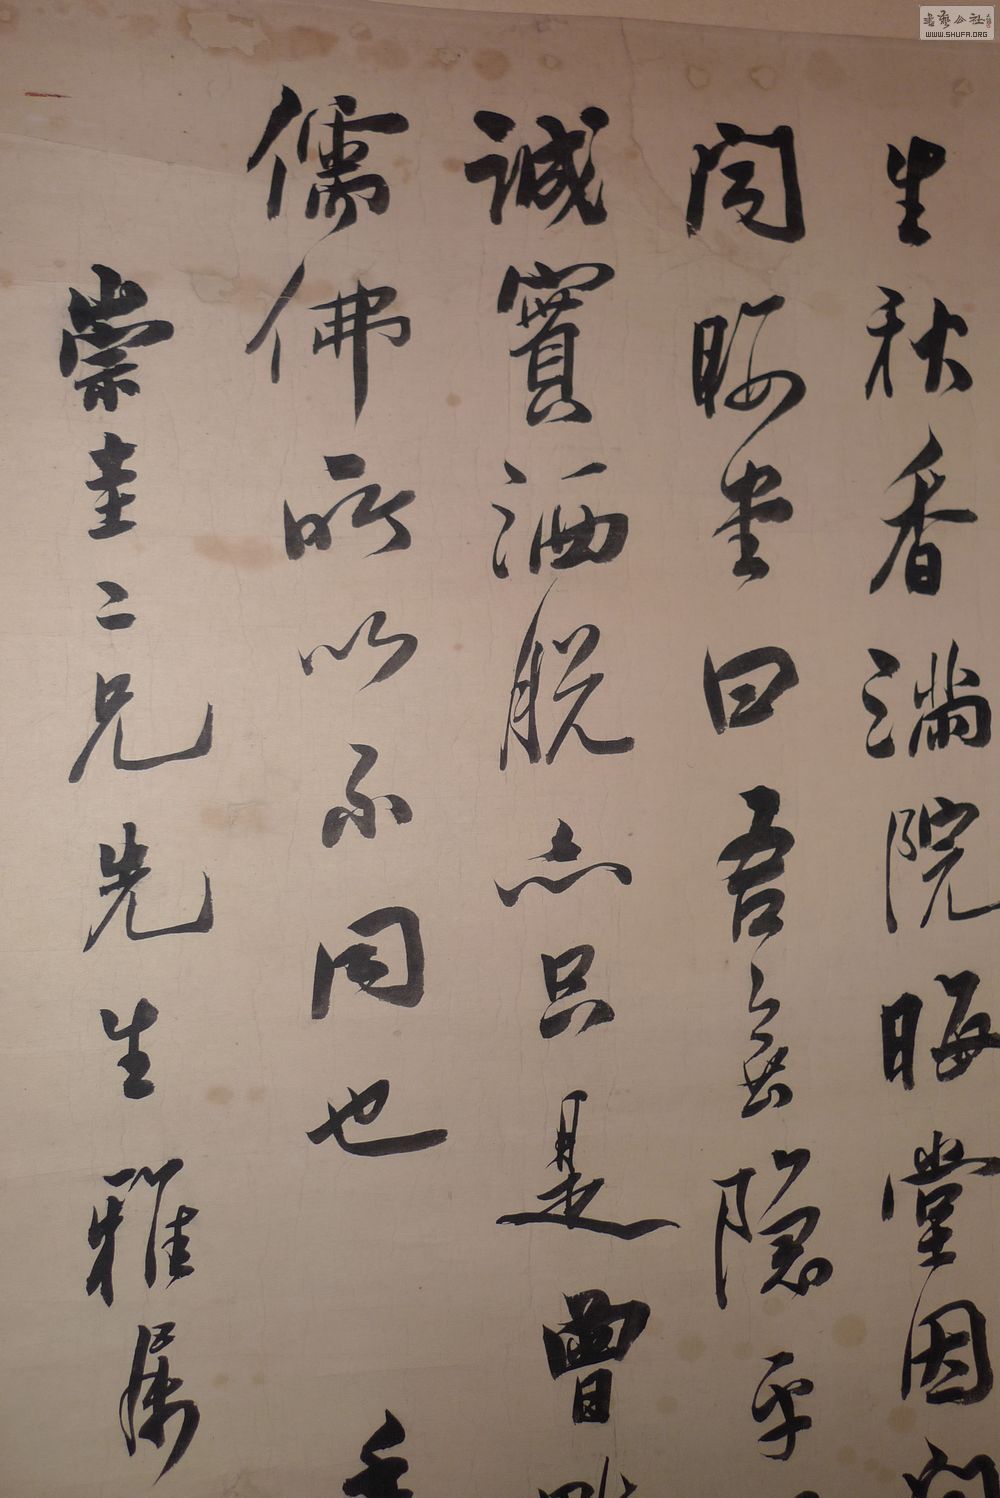 生秋香滿院晦堂因
聞晦堂曰吾無隱乎
誠實洒脱亦只是曾
儒佛所以不同也
崇圭二兄先生雅属
書藝公社
WWW.SHUFA.ORG